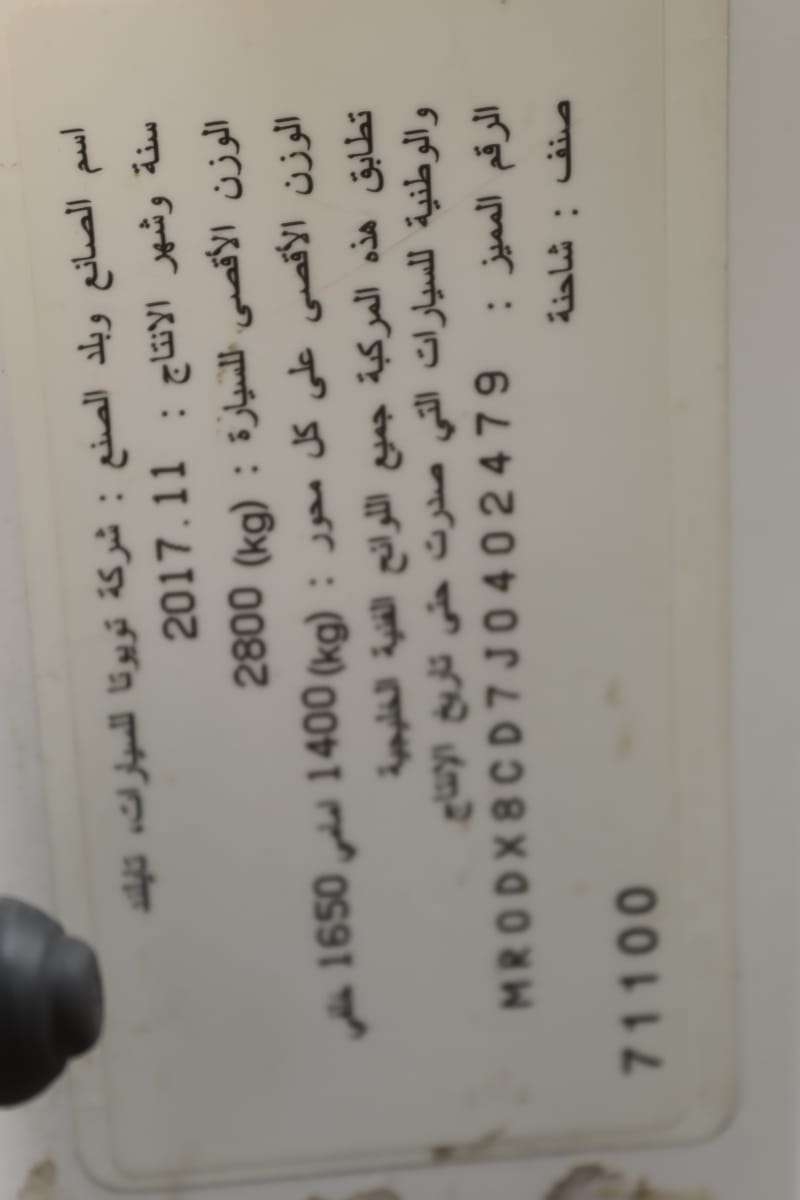 اسم الصانع وبلد الصنع : شركة تويوتا للسيارات، تايلند
سنة وشهر الانتاج : 2017.11
الوزن الأقصى للسيارة : (kg) 2800
الوزن الأقصى على كل محور : (kg) 1400 امامي 1650 خلفي
تطابق هذه المركبة جميع اللوائح الفنية الخليجية
والوطنية للسيارات التي صدرت حتى تاريخ الإنتاج
الرقم المميز : MR0DX8CD7J0402479
صنف : شاحنة
71100